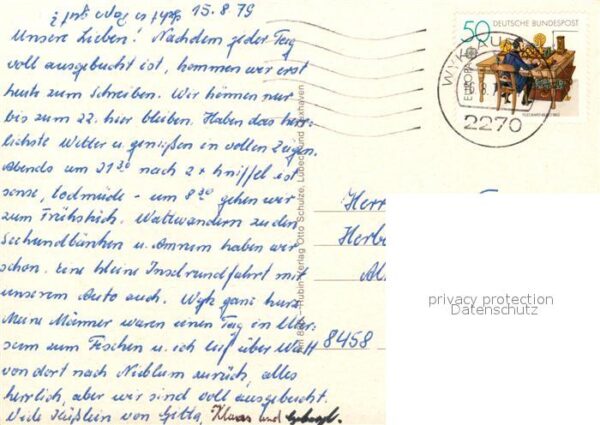 Geht es Papa gut?
15.8.79
Unsere Lieben! Nachdem jeder Tag
voll ausgebucht ist, kommen wir erst
heute zum Schreiben. Wir können nur
bis zum 22. hier bleiben. Haben das herr-
lichste Wetter u. genießen in vollen Zügen.
Abends um 21³⁰ nach 2 x Kniffel ist
sense, todmüde - um 8³⁰ gehen wir
zum Frühstück. Wattwandern zu den
Seehundbänken u. Amrum haben wir
schon. Eine kleine Inselrundfahrt mit
unserem Auto auch. Wyk ganz kurz.
Meine Männer waren einen Tag in Utersum
sum zum Fischen u. ich lief über Watt
von dort nach Nieblum zurück, alles
herrlich, aber wir sind voll ausgebucht.
Viele Küßlein von Gitta, Klaus und
50 DEUTSCHE BUNDESPOST
EUROPA
WYK AUF
8.7
2270
Rubin Verlag Otto Schulze, Lübeck und Cuxhaven
Herr
Herbe
8458
privacy protection
Datenschutz